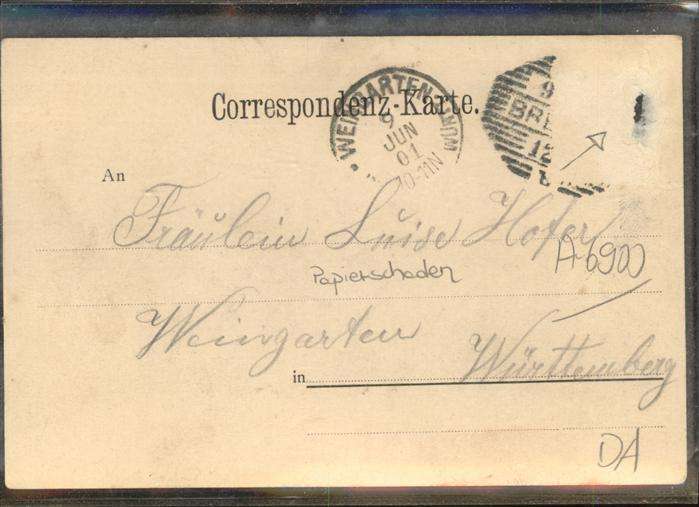 Correspondenz-Karte.
WEINGARTEN (WÜRT
9
JUN
01
10-11N
9
BRE
12
An
Fräulein Luise Hofer
A-6900
Papierschaden
Weingarten
in Württemberg
DA